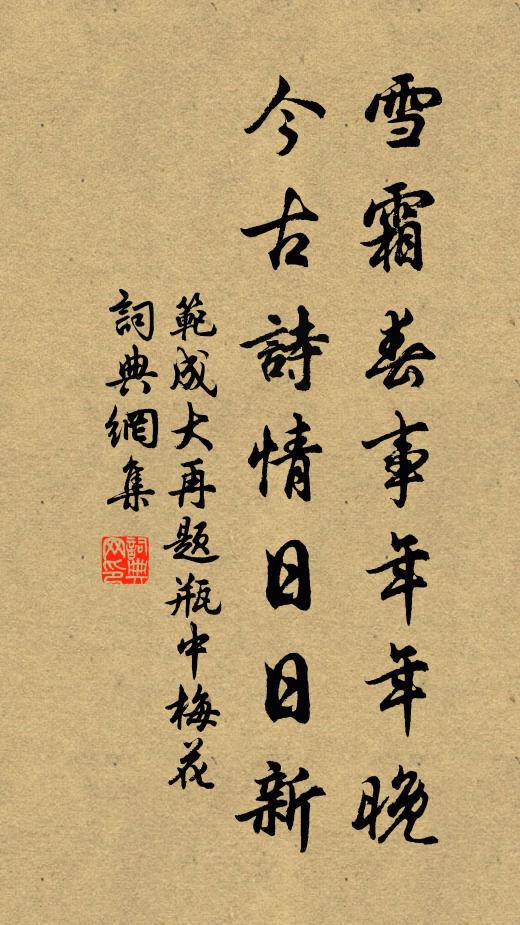 雪霜春事年年晚
今古詩情日日新
範成大再题瓶中梅花
詞典網集
詞典網印